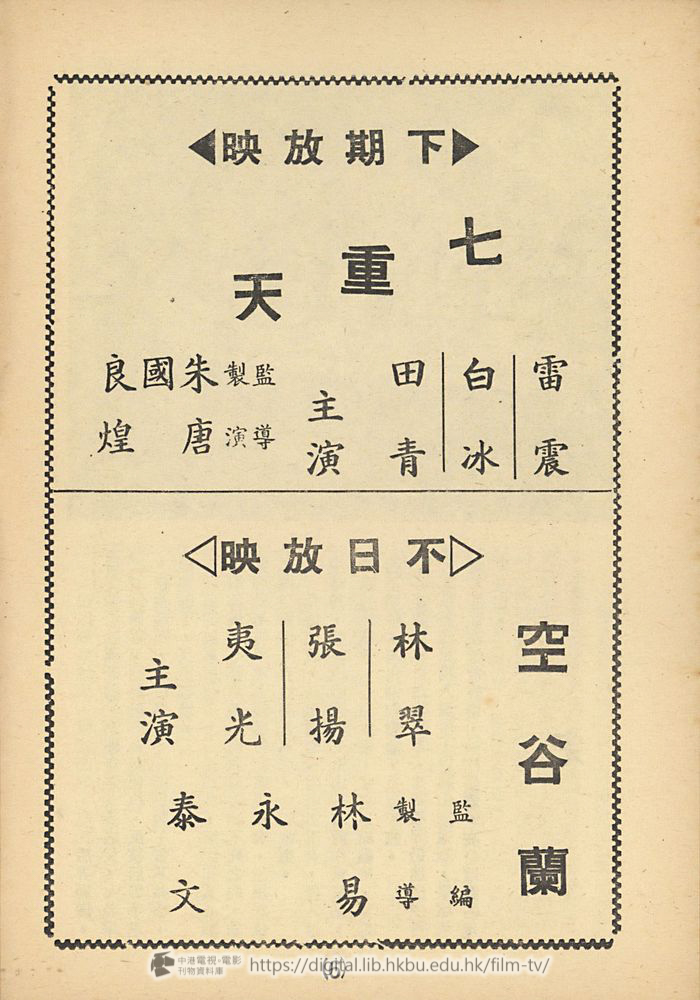 下期放映
七重天
雷震
白冰
田青
主演
監製 朱國良
導演 唐煌
不日放映
空谷蘭
林翠
張揚
夷光
主演
監製 林永泰
編導 易文
(6)
中港電視·電影
刊物資料庫
https://digital.lib.hkbu.edu.hk/film-tv/